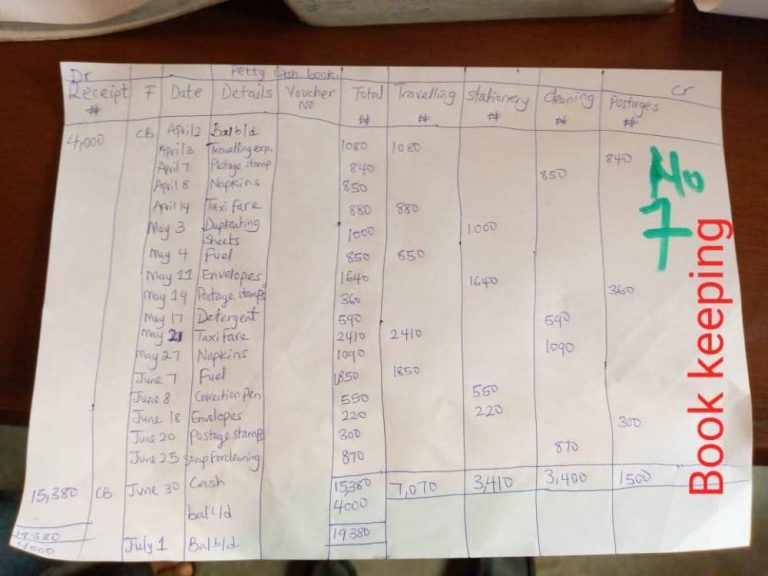 Dr Petty Cash book. Cr
Receipt F Date Details Voucher No Total Travelling Stationery Cleaning Postages
₦ ₦ ₦ ₦ ₦ ₦
4,000 CB April 2 Bal b/d
April 3 Travelling exp. 1080 1080
April 7 Postage stamp 840 840
April 8 Napkins 850 850
April 14 Taxi fare 880 880
May 3 Duplicating Sheets 1000 1000
May 4 Fuel 850 850
May 11 Envelopes 1640 1640
May 14 Postage stamps 360 360
May 17 Detergent 590 590
May 21 Taxi fare 2410 2410
May 27 Napkins 1090 1090
June 7 Fuel 1850 1850
June 8 Correction Pen 550 550
June 18 Envelopes 220 220
June 20 Postage stamp 300 300
June 25 soap for cleaning 870 870
15,380 CB June 30 Cash 15,380 7,070 3,410 3,400 1500
bal c/d 4000
19,380 19380
4000 July 1 Bal b/d
No
7
Book keeping